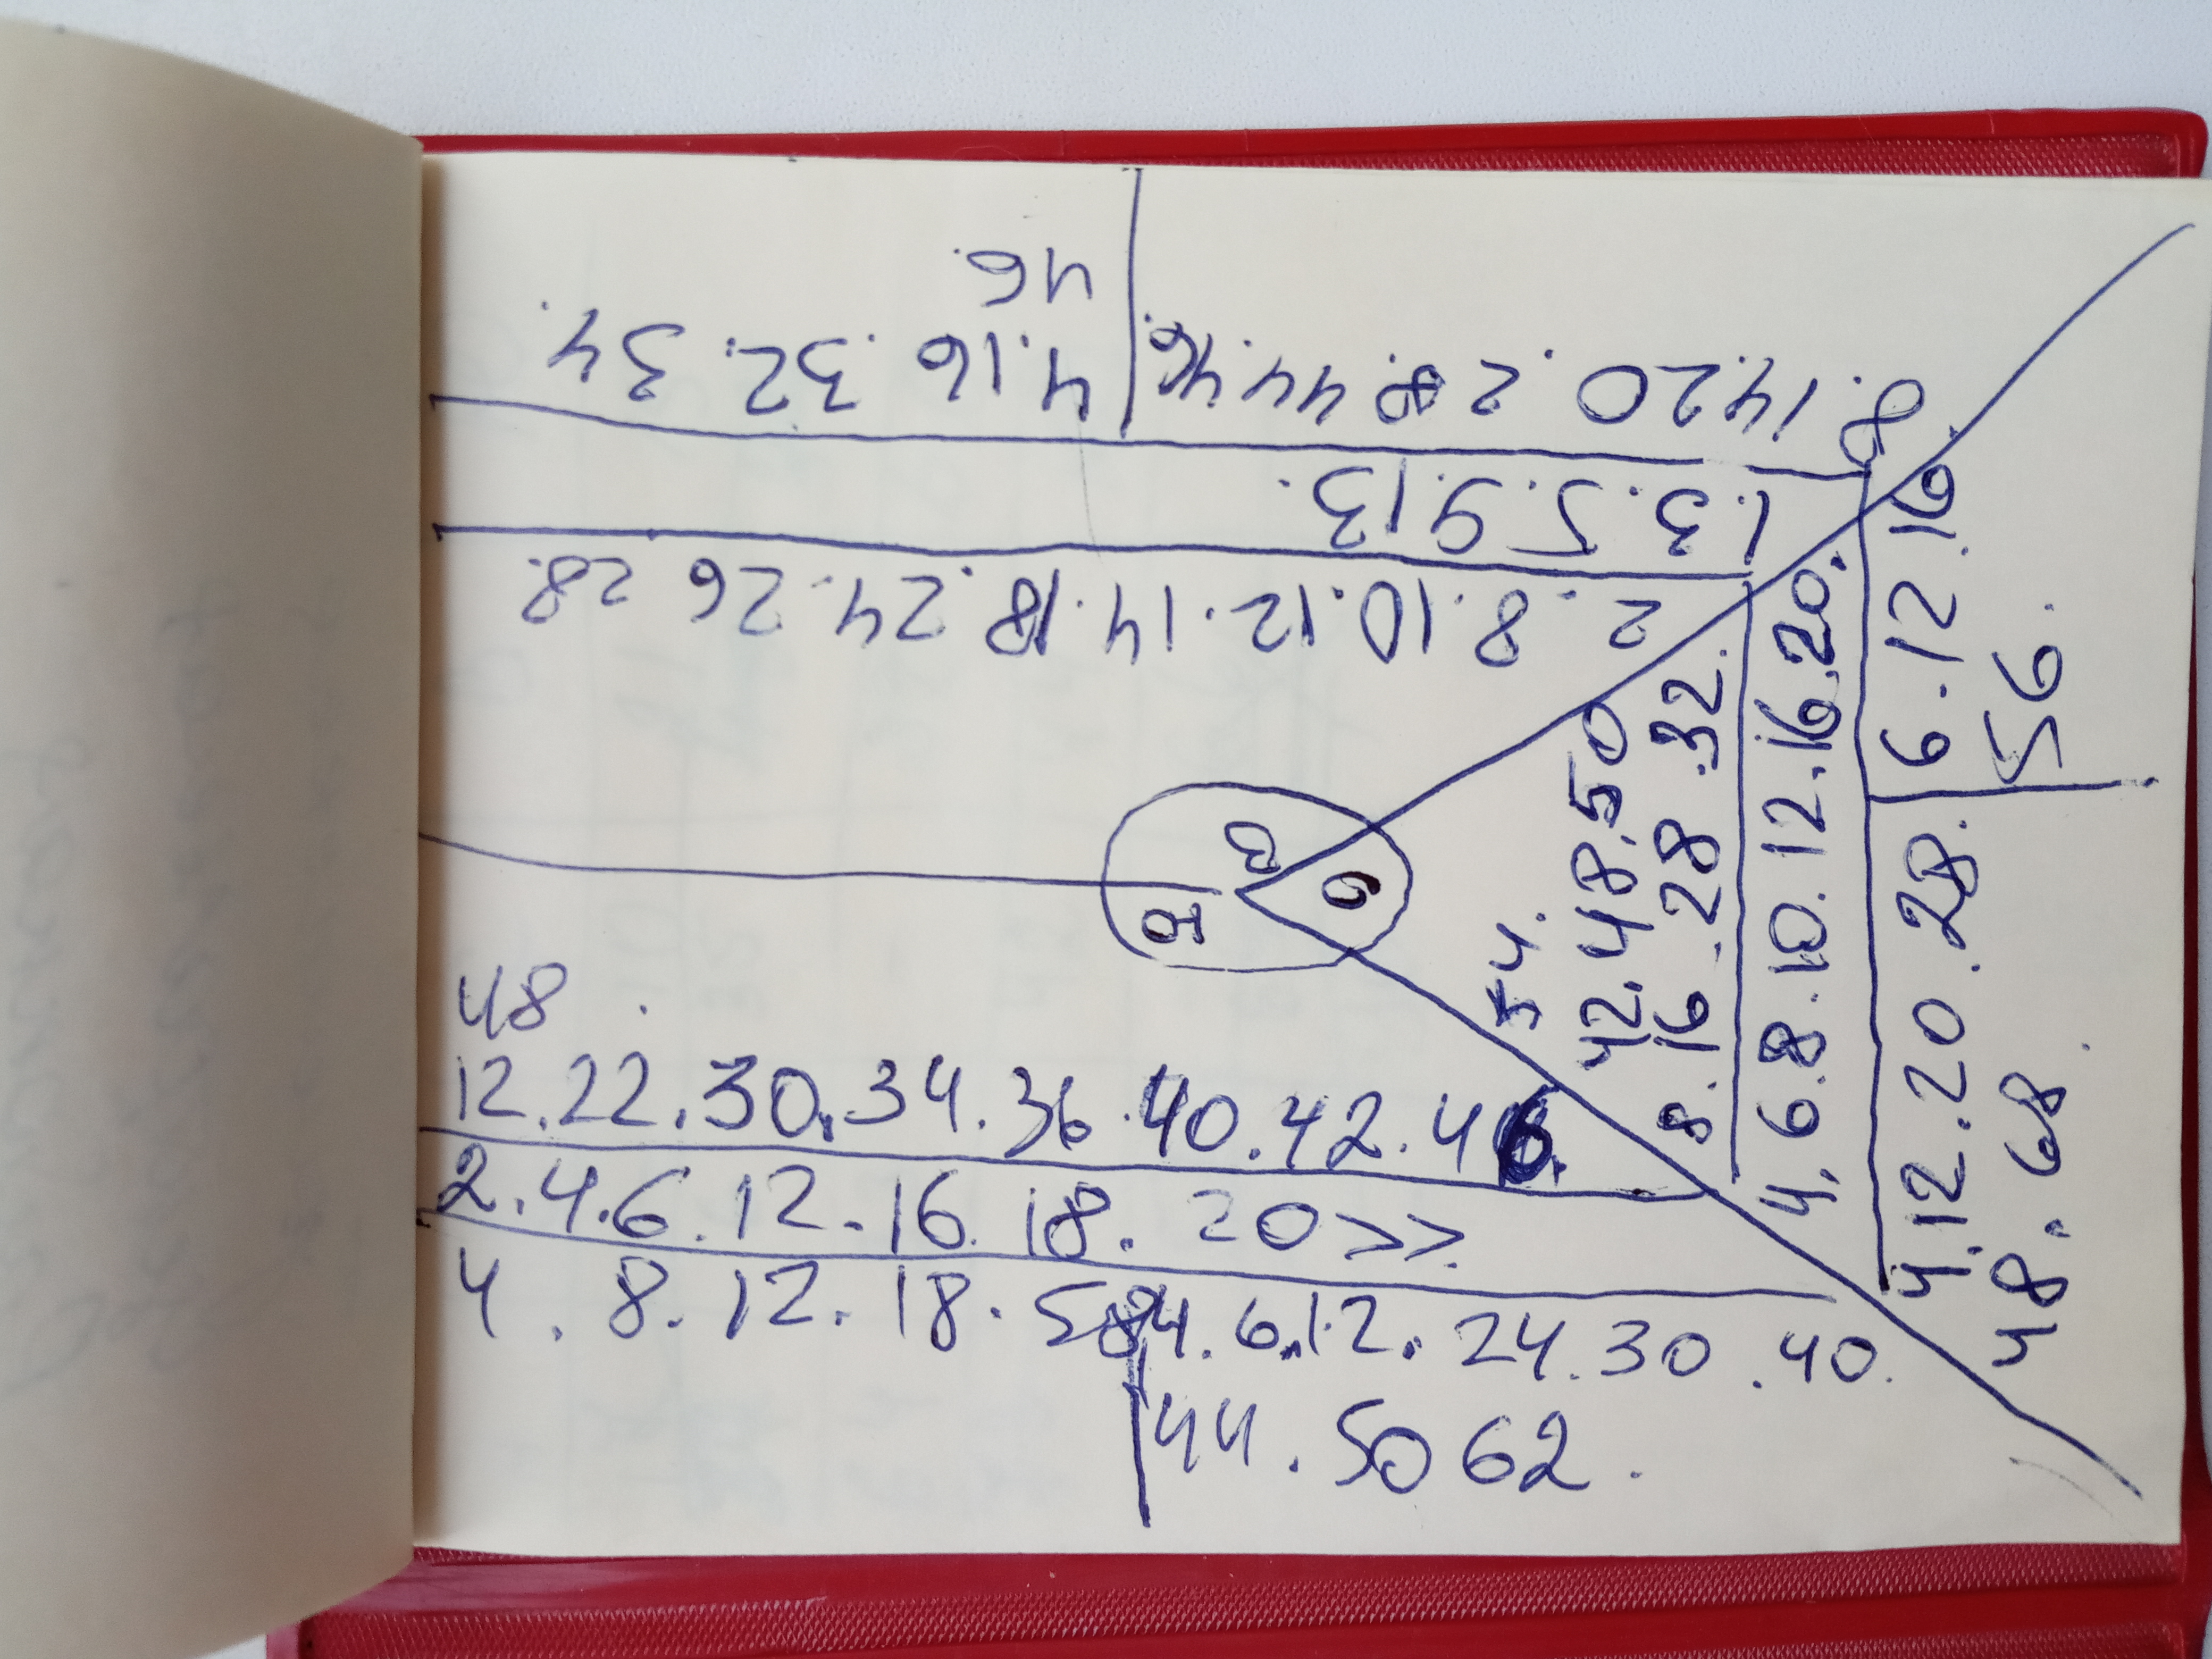 48.
12.22.30.34.36.40.42.46.
2.4.6.12.16.18.20>>.
4.8.12.18.
4.6.12.24.30.40.
44.50 62.
54.
42.48.50
8.16.28.32.
4.6.8.10.12.16.20.
4.12.20.28.
48.68.
6.12.16.
56.
2.8.10.12.14.18.24.26 28.
1.3.5.9.13.
8.14.20.28.44.46.
4.16.32.34.
46.